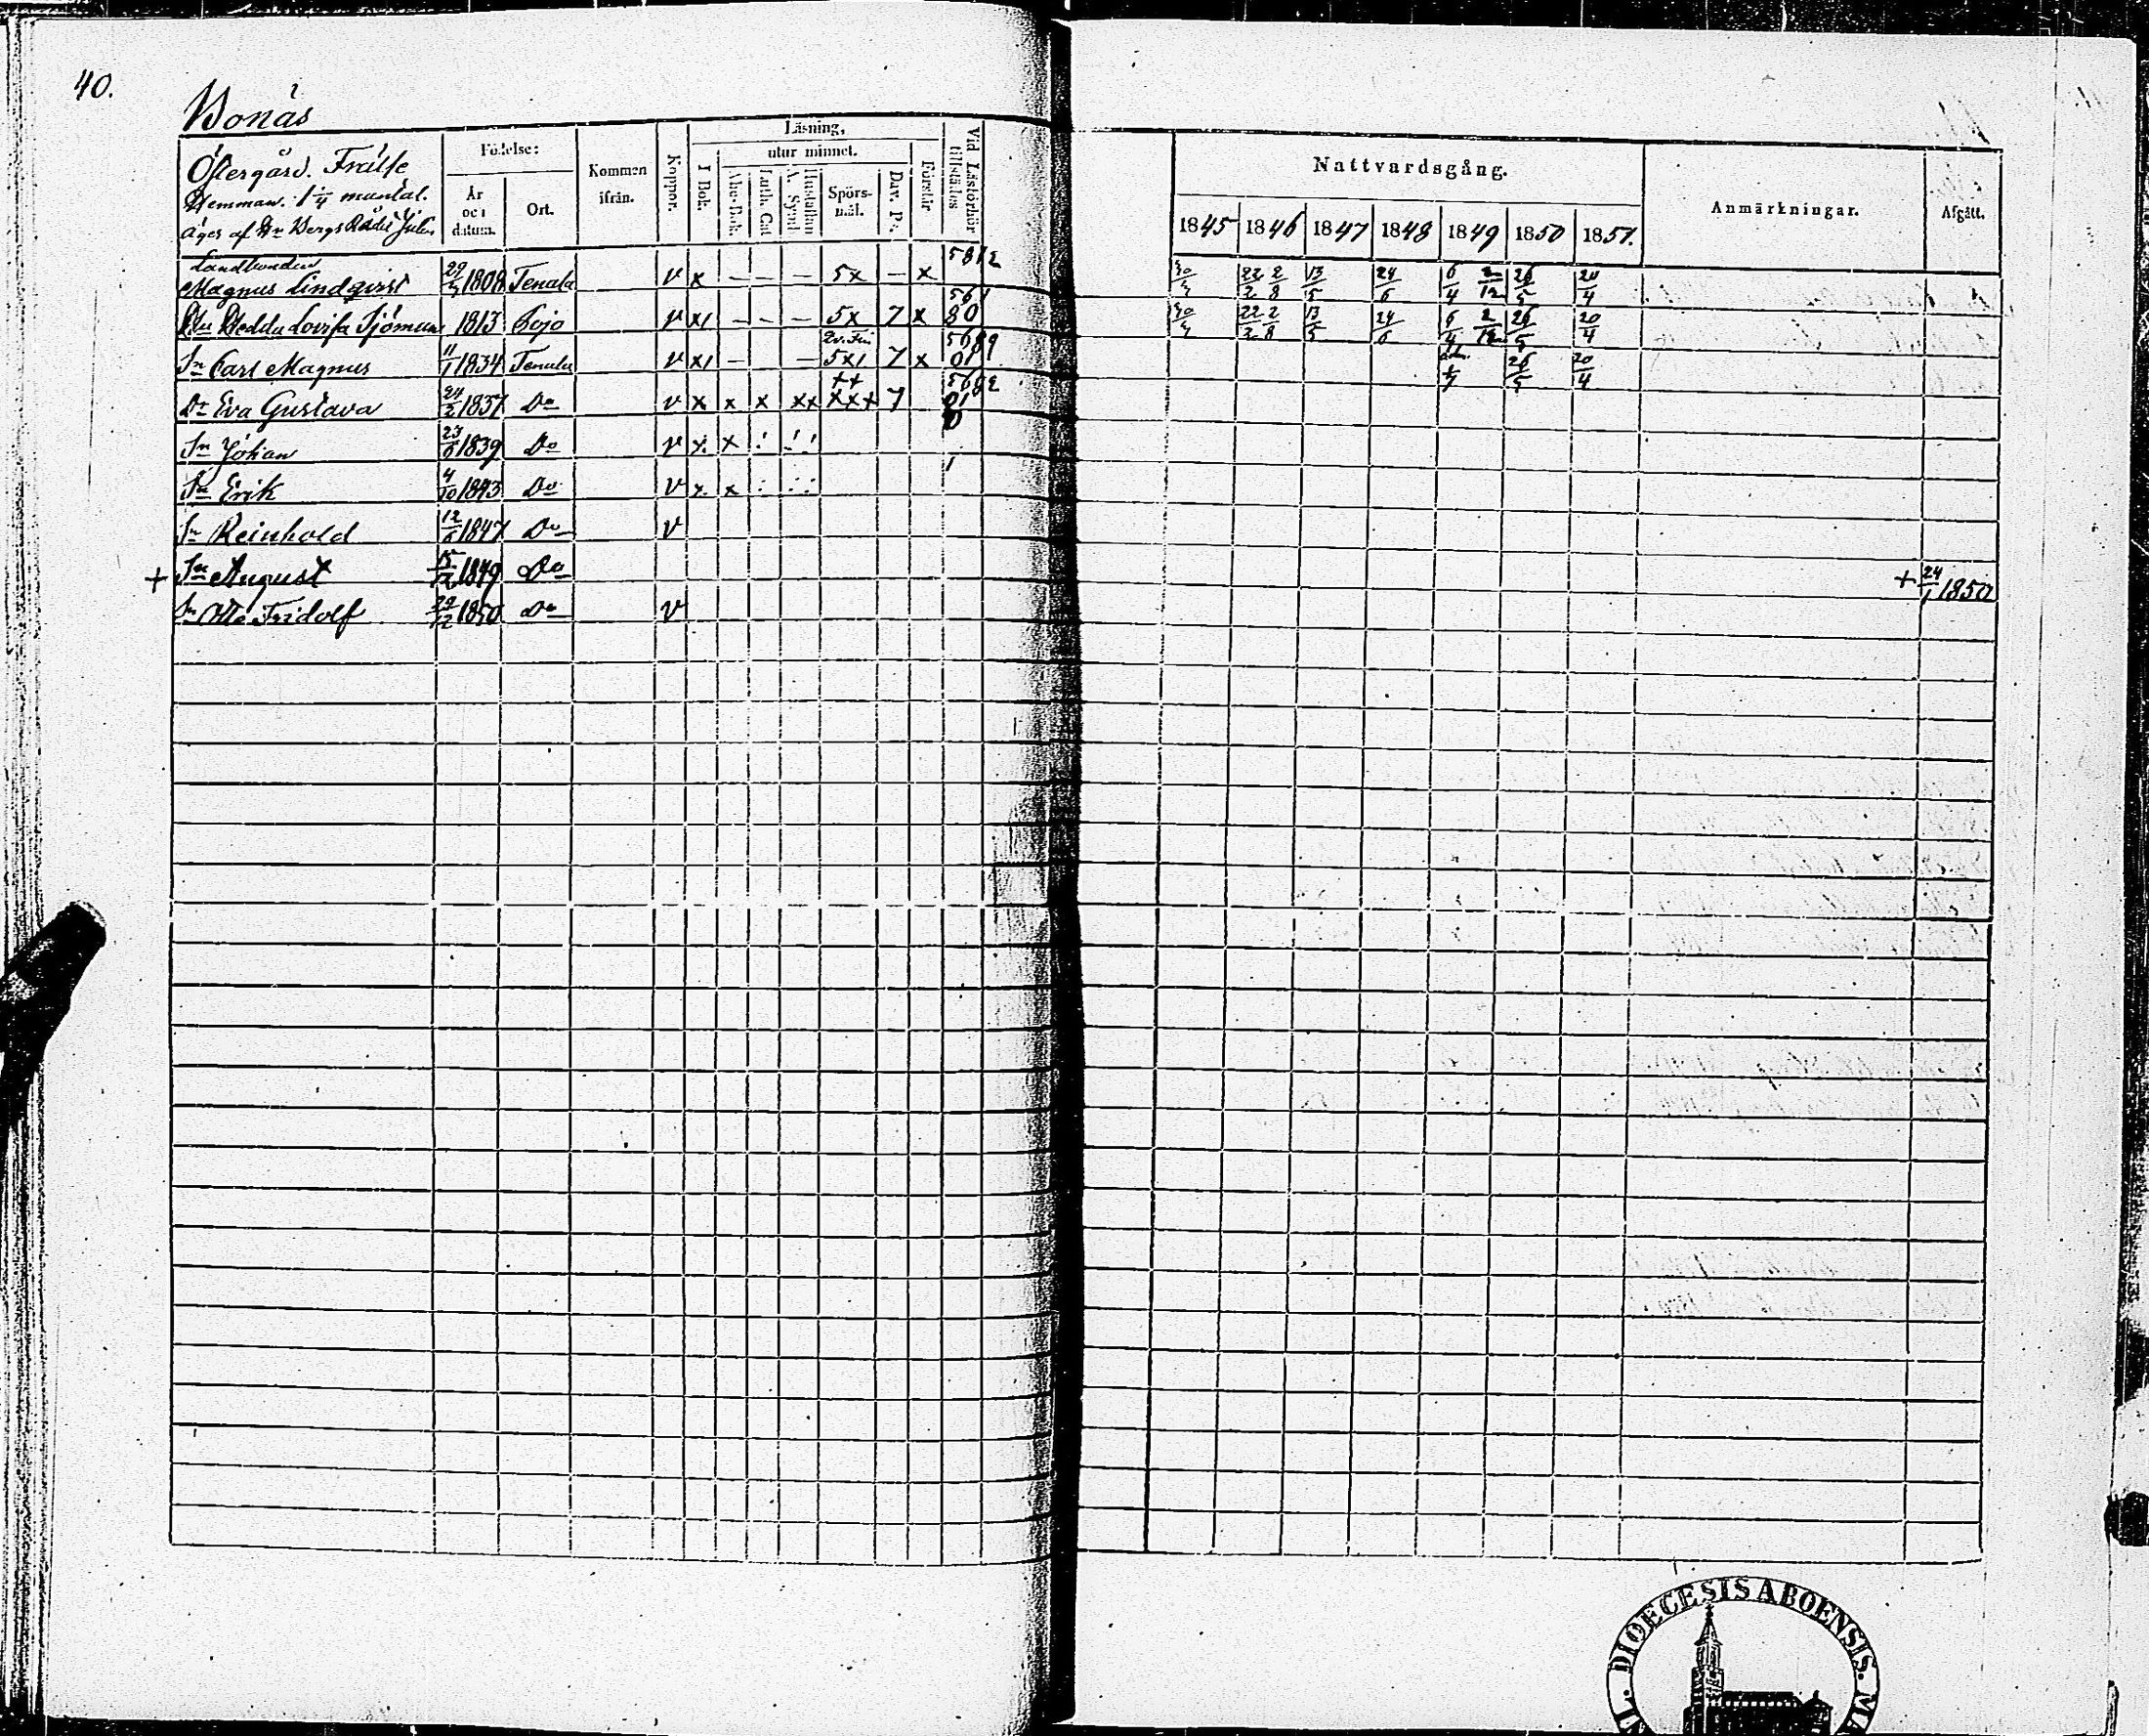 40.
Bonäs
Östergård. Frälse
Hemman. 1 1/4 mantal.
äges af Hr BergsRådet Julin
Födelse:
År och datum.
Ort.
Kommen ifrån.
Koppor.
Läsning,
utur minnet.
I Bok.
Abc-Bok
Luth. Cat
A. Symb
Hustaflan
Spörs-mål.
Dav. Ps.
Förstår
Vid Läsförhör tillstädes
Nattvardsgång.
1845 1846 1847 1848 1849 1850 1851.
Anmärkningar.
Afgått.
Landbonden
Magnus Lindqvist 1808 Tenala v x — — — 5x — x 22/3 2/8 13/5 24/6 6/4 2/12 26/5 20/4
Hu Hedda Lovisa Sjöman 1813 Pojo v x1 — — — 5x 7 x 80 22/3 2/8 13/5 24/6 6/4 2/12 26/5 20/4
Sn Carl Magnus 11/1 1834 Tenala v x1 — — 5x1 7 x 26/5 20/4
Dr Eva Gustava 1837 Do v x x x xx xxx 7
Sn Johan 1839 Do v x
Sn Erik 4/10 1843 Do v x x
Sn Reinhold 12/6 1847 Do v
+ Sn August 15/12 1849 Do + 24/1 1850
Sn Otto Fridolf 29/12 1850 Do v
DIOECESIS ABOENSIS.